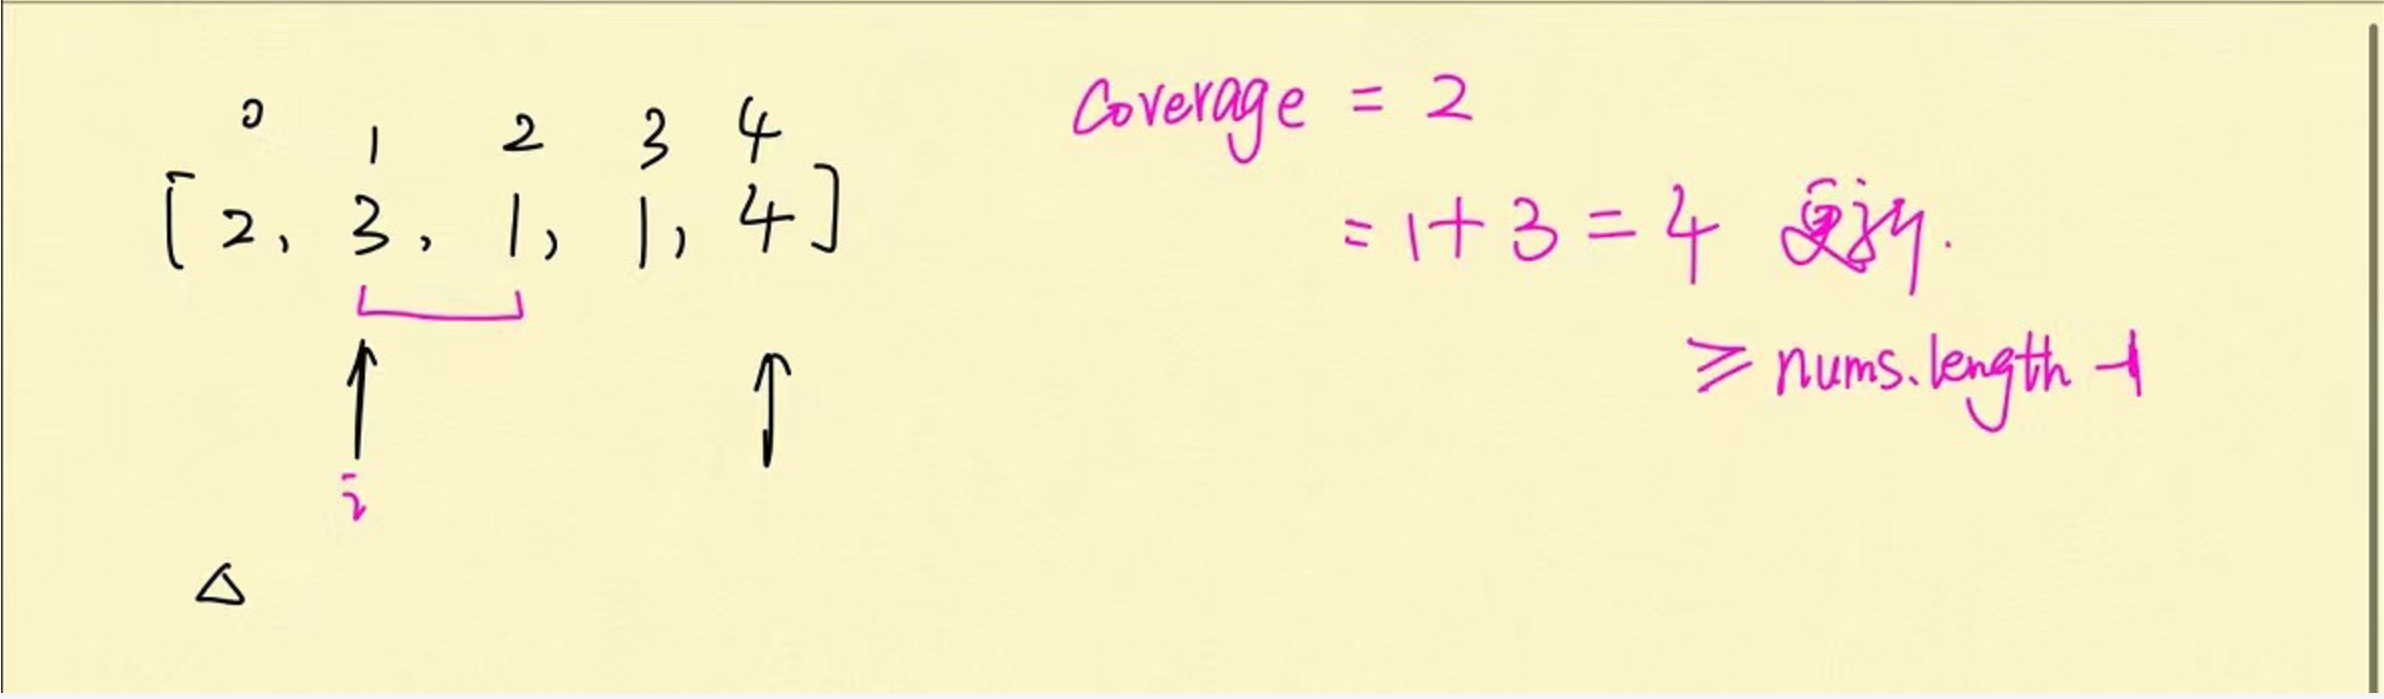 0 1 2 3 4
[2, 3, 1, 1, 4]
Coverage = 2
= 1+3 = 4 更新.
≥ nums.length -1
i